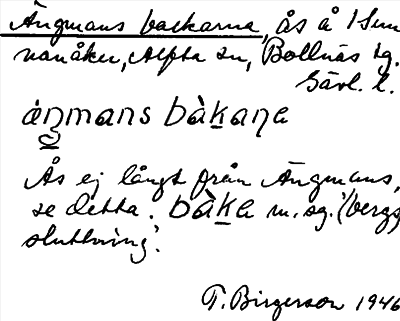 Ängmans backarna, ås å 1 Sun
nanåker, Alfta sn, Bollnäs tg.
Gävl. l.
áŋmans bàkana
Ås ej långt från Ängmans,
se detta. bàka m. sg. 'bergs
sluttning'.
T. Birgerson 1946